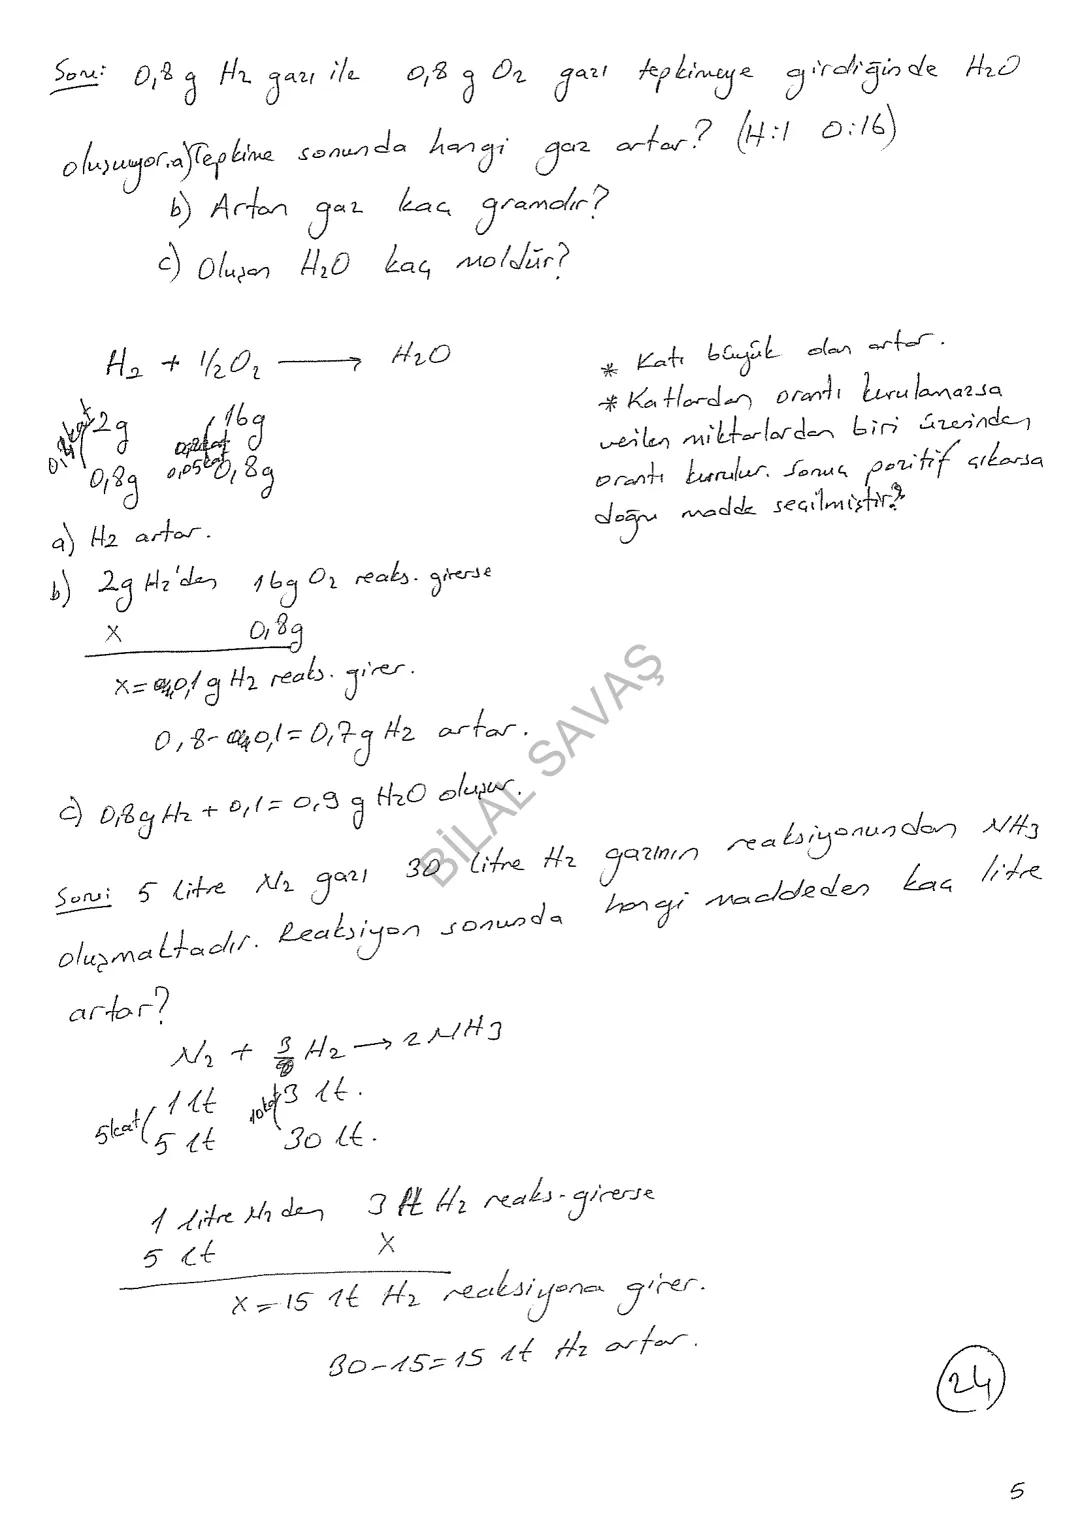 Soru: 0,8 g H2 gazı ile 0,8 g O2 gazı tepkimeye girdiğinde H2O
oluşuyor. a) Tepkime sonunda hangi gaz artar? (H:1 O:16)
b) Artan gaz kaç gramdır?
c) Oluşan H2O kaç moldür?
H2 + 1/2O2 → H2O
* Katı büyük olan artar.
* Katlardan orantı kurulamazsa
verilen miktarlardan biri üzerinden
orantı kurulur. Sonuç pozitif çıkarsa
doğru madde seçilmiştir.
2g 16g
0,4 kat 0,05 kat
0,8g 0,8g
a) H2 artar.
b) 2g H2'den 16g O2 reaks. girerse
x 0,8g
x = 0,1 g H2 reaks. girer.
0,8 - 0,1 = 0,7g H2 artar.
c) 0,8g H2 + 0,1 = 0,9 g H2O oluşur.
BİLAL SAVAŞ
Soru: 5 litre N2 gazı 30 litre H2 gazının reaksiyonundan NH3
oluşmaktadır. Reaksiyon sonunda hangi maddeden kaç litre
artar?
N2 + 3 H2 → 2 NH3
1 lt 3 lt.
5kat 10kat
5 lt 30 lt.
1 litre N2 den 3 lt H2 reaks. girerse
5 lt x
x = 15 lt H2 reaksiyona girer.
30-15=15 lt H2 artar.
24
5